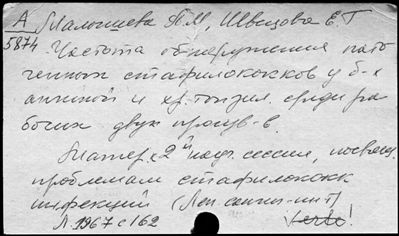 А
5874
Малышева Т.М, Швецова Е.Г
Частота обнаружения пато
генных стафилококков у б-х
ангиной и хр. тонзил. среди ра
бочих двух произв-в.
Матер. 2й науч. сессии, посвящ.
проблемам стафилококк
инфекций (Лен. инт)
Л. 1967 с 162
Verte!